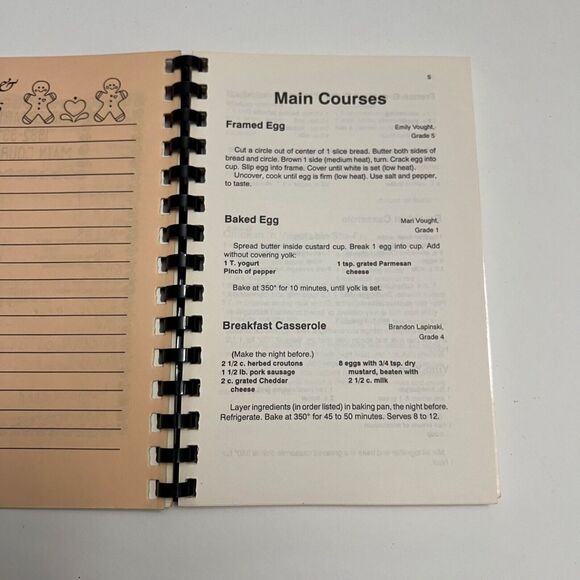 &
5
Main Courses
Framed Egg
Emily Vought,
Grade 5
Cut a circle out of center of 1 slice bread. Butter both sides of
bread and circle. Brown 1 side (medium heat), turn. Crack egg into
cup. Slip egg into frame. Cover until white is set (low heat).
Uncover, cook until egg is firm (low heat). Use salt and pepper,
to taste.
Baked Egg
Mari Vought,
Grade 1
Spread butter inside custard cup. Break 1 egg into cup. Add
without covering yolk:
1 T. yogurt
Pinch of pepper
1 tsp. grated Parmesan
cheese
Bake at 350° for 10 minutes, until yolk is set.
Breakfast Casserole
Brandon Lapinski,
Grade 4
(Make the night before.)
2 1/2 c. herbed croutons
1 1/2 lb. pork sausage
2 c. grated Cheddar
cheese
8 eggs with 3/4 tsp. dry
mustard, beaten with
2 1/2 c. milk
Layer ingredients (in order listed) in baking pan, the night before.
Refrigerate. Bake at 350° for 45 to 50 minutes. Serves 8 to 12.